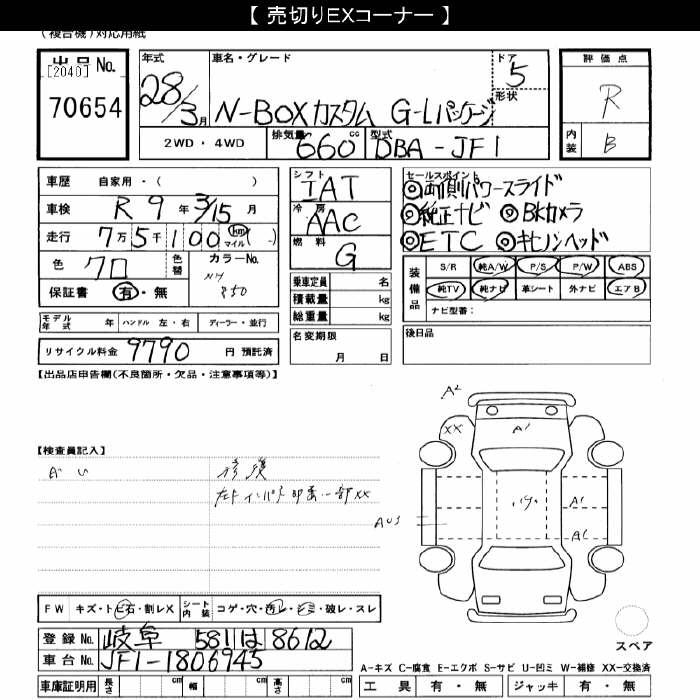 【 売切りEXコーナー 】
(複合機)対応用紙
出品 No.
[2040]
70654
年式
28/3月
車名・グレード
N-BOXカスタム G-Lパッケージ
ドア
5
形状
評価点
R
内装
B
2WD ・ 4WD
排気量 660 cc
型式 DBA-JF1
車歴 自家用・( )
車検 R 9 年 3/15 月
走行 7万5千100 km マイル ( )
色 クロ
色替
カラーNo.
NH
850
保証書 有・無
シフト
IAT
冷房
AAC
燃料
G
乗車定員 名
積載量 kg
総重量 kg
セールスポイント
◎両側パワースライド
◎純正ナビ ◎Bkカメラ
◎ETC ◎キセノンヘッド
装備品
S/R 純A/W P/S P/W ABS
純TV 純ナビ 革シート 外ナビ エアB
ナビ型番：
モデル年式 年 ハンドル 左・右 ディーラー・並行
リサイクル料金 9790 円 預託済
名変期限
月 日
後日品
【出品店申告欄(不良箇所・欠品・注意事項等)】
【検査員記入】
修復
A2
XX
A1
A1
FW キズ・トビ石・割レX シート内装 コゲ・穴・汚レ・シミ・破レ・スレ
登録 No. 岐阜 581 は 8612
車台 No. JF1-1806945
スペア
A-キズ C-腐食 E-エクボ S-サビ U-凹ミ W-補修 XX-交換済
車庫証明用 長さ cm 幅 cm 高さ cm
工具 有・無 ジャッキ 有・無